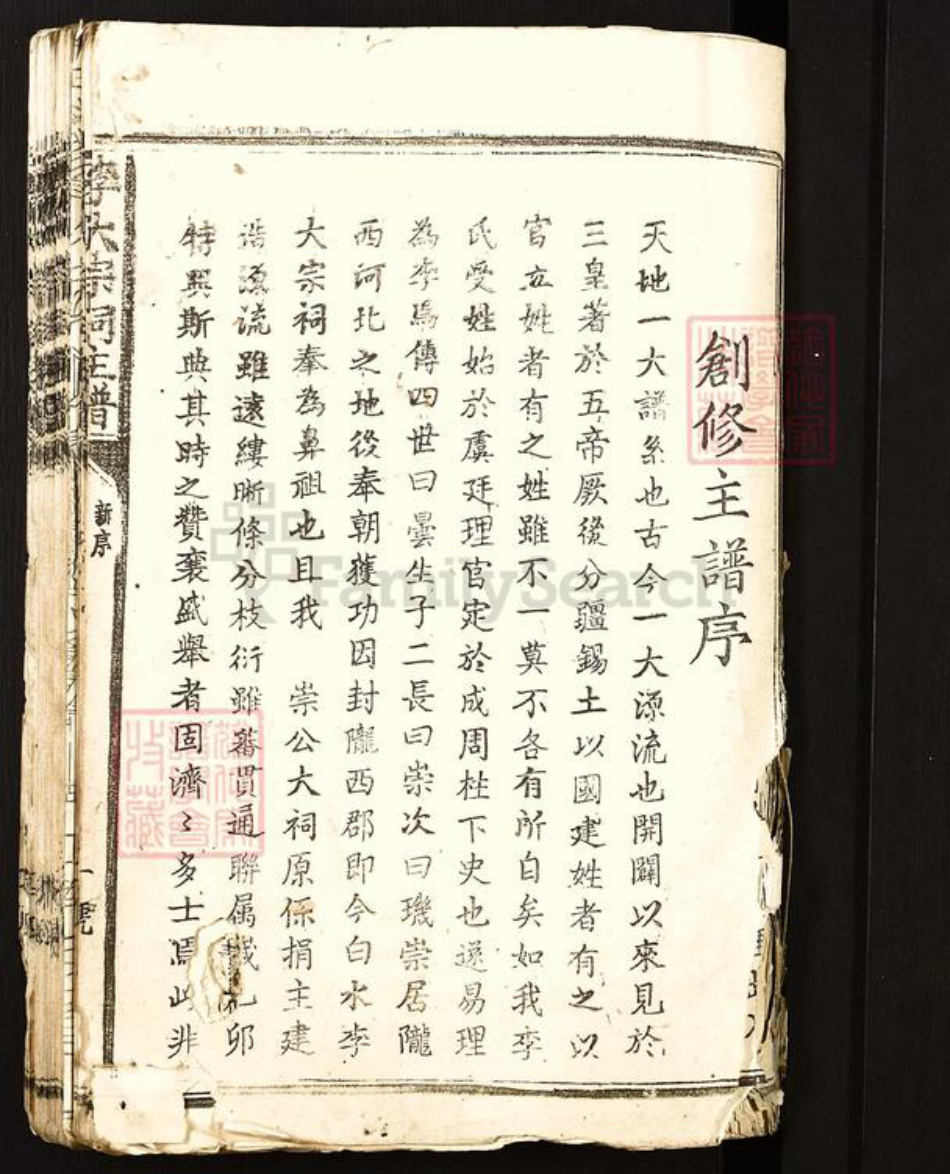 創修主譜序
天地一大譜系也古今一大源流也開闢以來見於
三皇著於五帝厥後分疆錫土以國建姓者有之以
官立姓者有之姓雖不一莫不各有所自矣如我李
氏受姓始於虞廷理官定於成周柱下史也遂易理
為李焉傳四世曰曇生子二長曰崇次曰璣崇居隴
西河北之地後奉朝獲功因封隴西郡即今白水李
大宗祠奉為鼻祖也且我 崇公大祠原係捐主建
造源流雖遠縷晰條分枝衍雖蕃貫通聯属歲卯
特興斯典其時之贊襄盛舉者固濟〻多士焉此非
李氏大宗祠主譜
新序
一號
FamilySearch
收藏